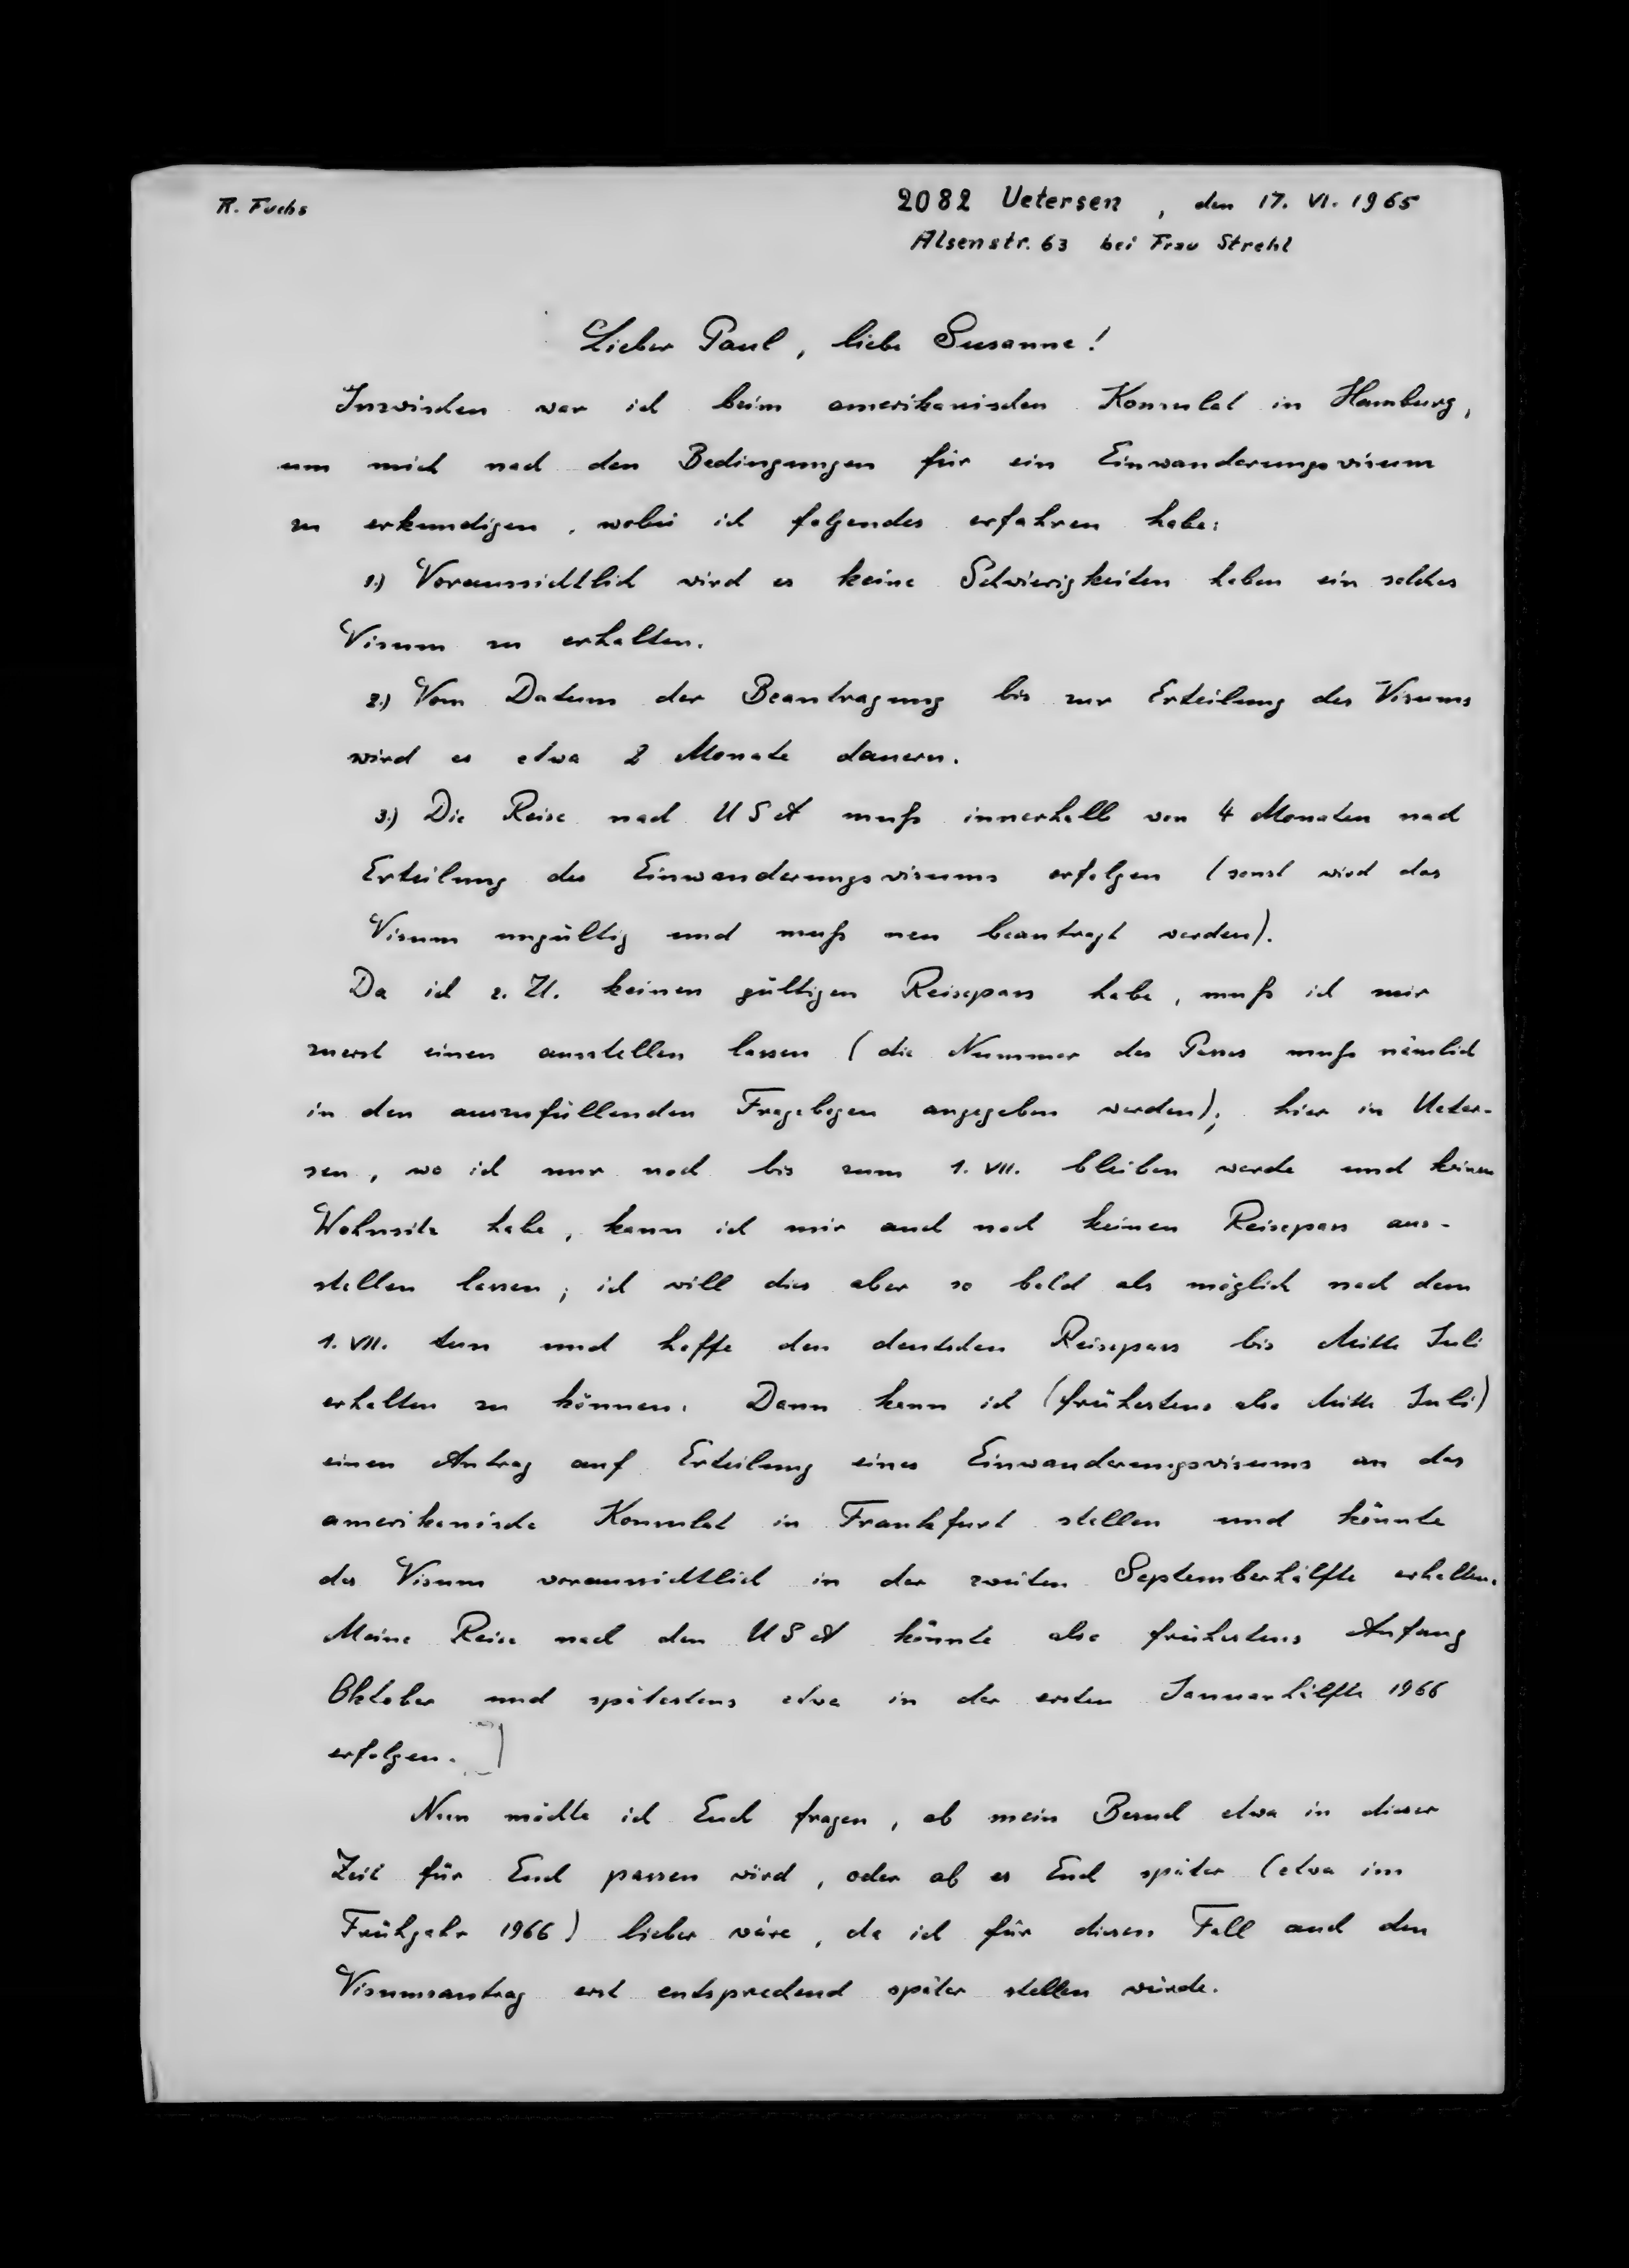 R. Fuchs
2082 Uetersen, den 17. VI. 1965
Alsenstr. 63 bei Frau Strehl
Lieber Paul, liebe Susanne!
Inzwischen war ich beim amerikanischen Konsulat in Hamburg,
um mich nach den Bedingungen für ein Einwanderungsvisum
zu erkundigen, wobei ich folgendes erfahren habe:
1.) Voraussichtlich wird es keine Schwierigkeiten haben ein solches
Visum zu erhalten.
2.) Vom Datum der Beantragung bis zur Erteilung des Visums
wird es etwa 2 Monate dauern.
3.) Die Reise nach USA muß innerhalb von 4 Monaten nach
Erteilung des Einwanderungsvisums erfolgen (sonst wird das
Visum ungültig und muß neu beantragt werden).
Da ich z. Zt. keinen gültigen Reisepass habe, muß ich mir
zuerst einen ausstellen lassen (die Nummer des Passes muß nämlich
in den auszufüllenden Fragebogen angegeben werden); hier in Ueter-
sen, wo ich nur noch bis zum 1. VII. bleiben werde und keinen
Wohnsitz habe, kann ich mir auch noch keinen Reisepass aus-
stellen lassen; ich will dies aber so bald als möglich nach dem
1. VII. tun und hoffe den deutschen Reisepass bis Mitte Juli
erhalten zu können. Dann kann ich (frühestens also Mitte Juli)
einen Antrag auf Erteilung eines Einwanderungsvisums an das
amerikanische Konsulat in Frankfurt stellen und könnte
das Visum voraussichtlich in der zweiten Septemberhälfte erhalten.
Meine Reise nach den USA könnte also frühestens Anfang
Oktober und spätestens etwa in der ersten Januarhälfte 1966
erfolgen. ]
Nun möchte ich Euch fragen, ob mein Besuch etwa in dieser
Zeit für Euch passen wird, oder ob es Euch später (etwa im
Frühjahr 1966) lieber wäre, da ich für diesen Fall auch den
Visumsantrag erst entsprechend später stellen würde.